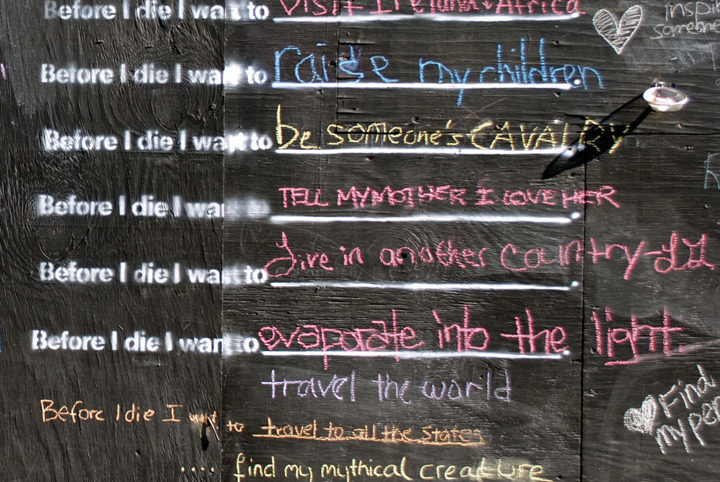 Before I die I want to visit Ireland & Africa
Before I die I want to raise my children
Before I die I want to be someone's CAVALRY
Before I die I want to TELL MY MOTHER I LOVE HER
Before I die I want to Live in another country
Before I die I want to evaporate into the light
travel the world
Before I die I want to travel to all the states
.... find my mythical creature
Find
my